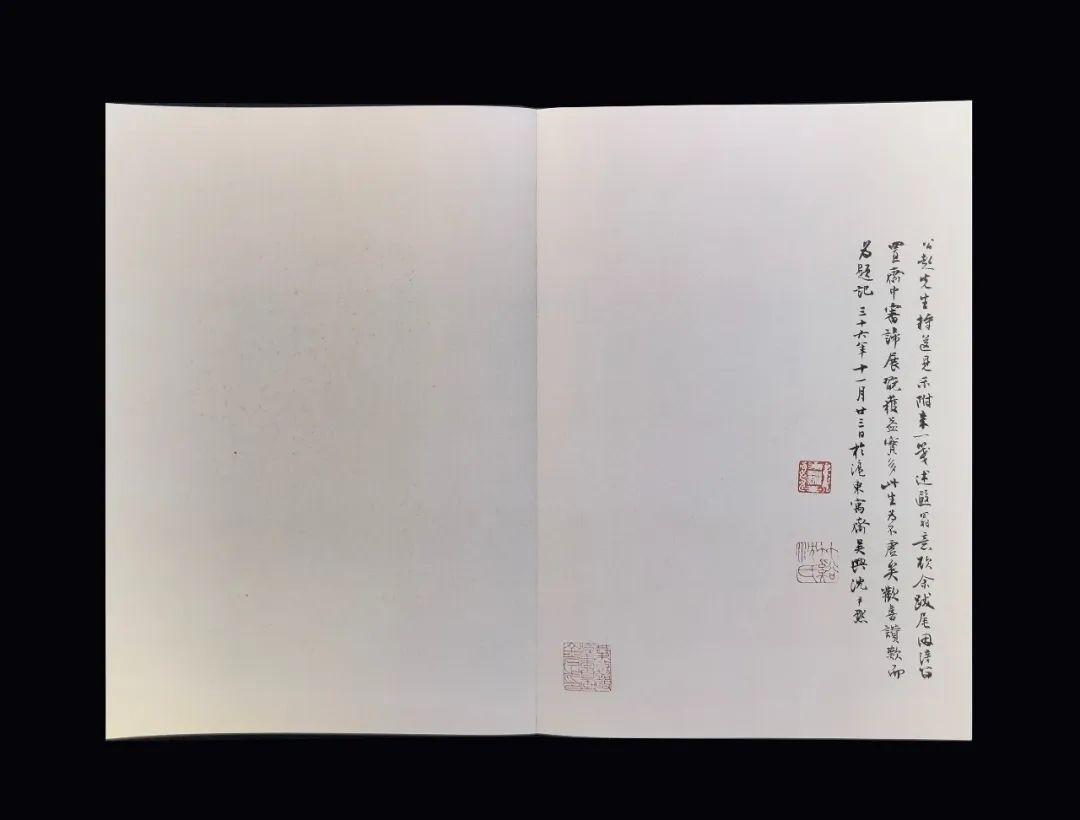 公彪先生持送見示附來一箋述遐翁意欲余跋尾因淂留
置齋中審諦展玩獲益實多此生為不虛矣歡喜讚歎而
為題記三十六年十一月廿三日於滬東寓齋吳興沈尹默
竹谿沈氏